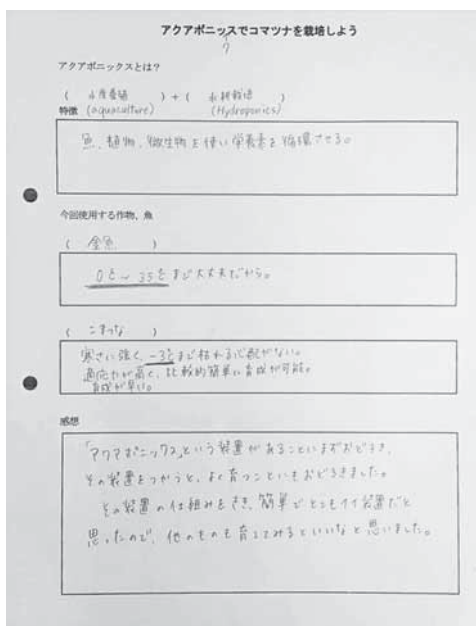 アクアポニッスでコマツナを栽培しよう
ク
アクアポニックスとは?
( 水産養殖 ) + ( 水耕栽培 )
特徴 (aquaculture) (Hydroponics)
魚、植物、微生物を使い栄養素を循環させる。
今回使用する作物、魚
( 金魚 )
0℃~35℃まで大丈夫だから。
( こまつな )
寒さに強く、-3℃まで枯れる心配がない。
適応力が高く、比較的簡単に育成が可能。
育成が早い。
感想
「アクアポニックス」という装置があることにまずおどろき、
その装置をつかうと、よく育つことにもおどろきました。
その装置の仕組みをきき、簡単でとてもイイ装置だと
思ったので、他のものも育ててみるといいなと思いました。